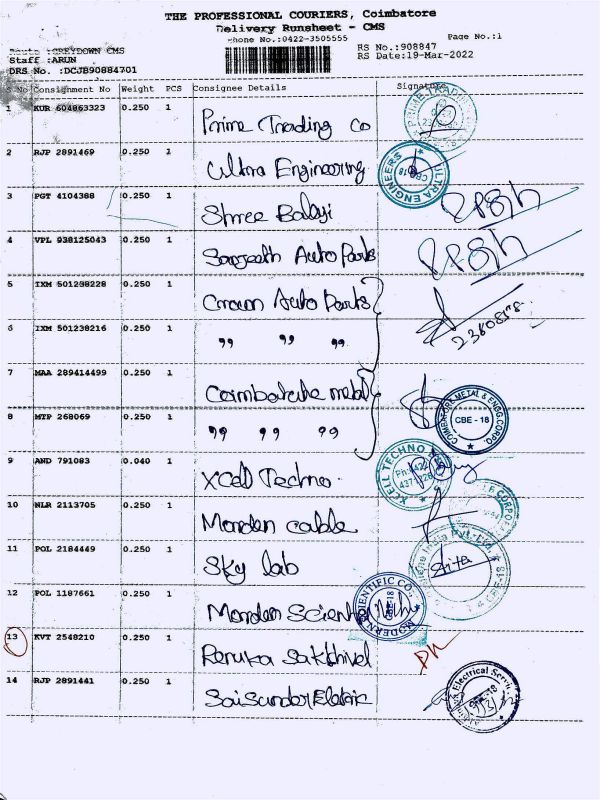 THE PROFESSIONAL COURIERS, Coimbatore
Delivery Runsheet - CMS
Phone No.:0422-3505555
Page No.:1
Route :GREYDOWN CMS
Staff :ARUN
DRS No. :DCJB90884701
RS No.:908847
RS Date:19-Mar-2022
S No Consignment No Weight PCS Consignee Details Signature
1 KUR 604863323 0.250 1 Prime Trading Co
2 RJP 2891469 0.250 1 Ultra Engineering
ULTRA ENGINEERS
3 PGT 4104388 0.250 1 Shree Balaji
4 VPL 938125043 0.250 1 Auto Parts
5 IXM 501238228 0.250 1 Crown Auto Parts
6 IXM 501238216 0.250 1 " " "
7 MAA 289414499 0.250 1 Coimbatore metal
COIMBATORE METAL & ENGG.CORPO
CBE - 18
8 MTP 268069 0.250 1 " " "
9 AND 791083 0.040 1 XCell Techno.
XCELL TECHNO
10 NLR 2113705 0.250 1 Morden cable
11 POL 2184449 0.250 1 Sky lab
12 POL 1187661 0.250 1 Morden Scientific
MODERN SCIENTIFIC CO.
13 KVT 2548210 0.250 1 Renuka Sakthivel
14 RJP 2891441 0.250 1 Sai Sunder Eletric
Electrical